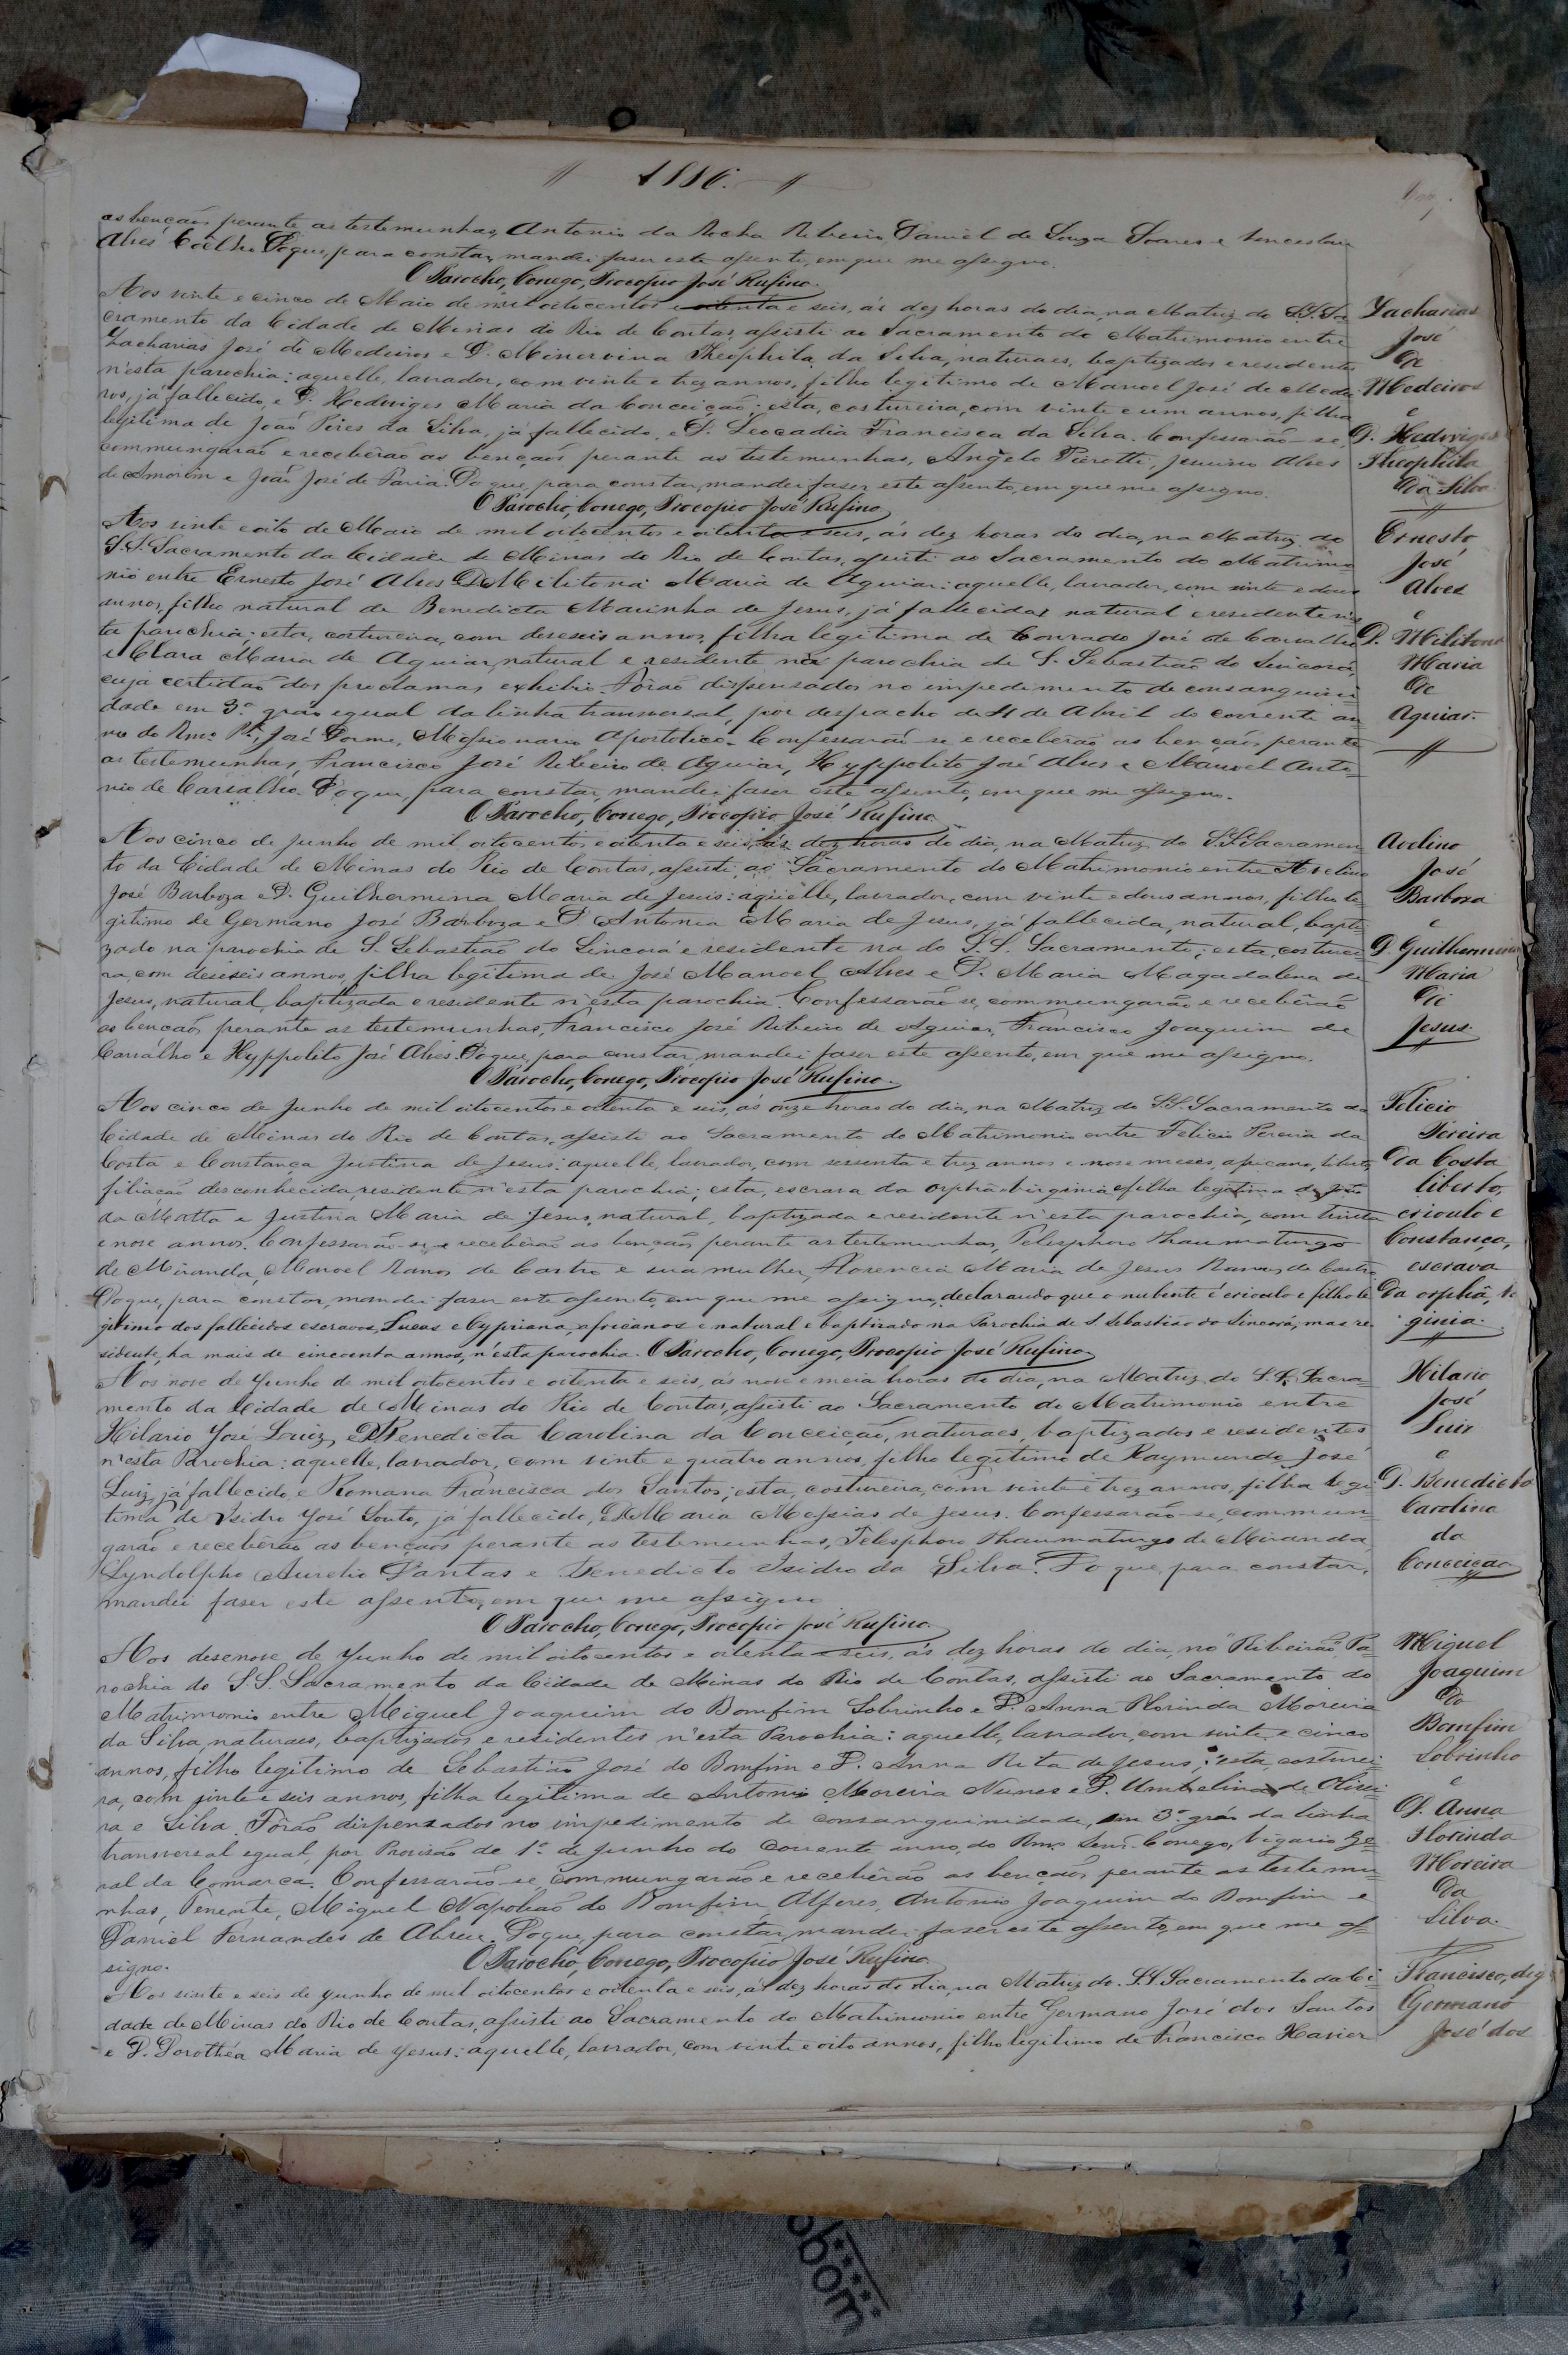 1886.
as bençãos perante as testemunhas, Antonio da Rocha Ribeiro, Daniel de Souza Soares e Venceslau
Alves Coêlho. Do que, para constar, mandei faser este assento, em que me assigno.
O Parocho, Conego, Procopio José Rufino.
Aos vinte e cinco de Maio de mil oitocentos e oitenta e seis, ás dez horas do dia, na Matriz do S.S. Sa-
cramento da Cidade de Minas do Rio de Contas, assisti ao Sacramento do Matrimonio entre
Zacharias José de Medeiros e D. Minervina Theophila da Silva, naturaes, baptizados e residentes
n'esta parochia: aquelle, lavrador, com vinte e trez annos, filho legitimo de Manoel José de Medei-
ros, já fallecido, e D. Hedwiges Maria da Conceição; esta, costureira, com vinte e um annos, filha
legitima de João Pires da Silva, já fallecido, e D. Leocadia Francisca da Silva. Confessarão-se,
commungarão e receberão as bençãos perante as testemunhas, Angelo Pierotti, Juvino Alves
de Amorim e João José de Faria. Do que, para constar, mandei faser este assento, em que me assigno.
O Parocho, Conego, Procopio José Rufino.
Zacharias
José
de
Medeiros
e
D. Hedwiges
Theophila
da Silva
Aos vinte e oito de Maio de mil oitocentos e oitenta e seis, ás dez horas do dia, na Matriz do
S.S. Sacramento da Cidade de Minas do Rio de Contas, assisti ao Sacramento do Matrimo
nio entre Ernesto José Alves e D. Militona Maria de Aguiar: aquelle, lavrador, com vinte e dous
annos, filho natural de Benedicta Marinha de Jesus, já fallecida, natural e residente n'es
ta parochia; esta, costureira, com deseseis annos, filha legitima de Conrado José de Carvalho
e Clara Maria de Aguiar, natural e residente na parochia de S. Sebastião do Sincorá,
cuja certidão dos proclamas exhibio. Fôrão dispensados no impedimento de consanguini
dade em 3.º gráo egual da linha transversal, por despacho de 4 de Abril do corrente an
no do Rmº Pe. José Dorme, Missionario Apostolico. Confessarão-se e receberão as bençãos perante
as testemunhas, Francisco José Ribeiro de Aguiar, Hyppolito José Alves e Manoel Anto
nio de Carvalho. Do que, para constar, mandei faser este assento, em que me assigno.
O Parocho, Conego, Procopio José Rufino.
Ernesto
José
Alves
e
D. Militona
Maria
de
Aguiar.
Aos cinco de Junho de mil oitocentos e oitenta e seis, ás dez horas do dia, na Matriz do S.S. Sacramen
to da Cidade de Minas do Rio de Contas, assisti ao Sacramento do Matrimonio entre Avelino
José Barboza e D. Guilhermina Maria de Jesus: aquelle, lavrador, com vinte e dous annos, filho le
gitimo de Germano José Barboza e D. Antonia Maria de Jesus, já fallecida, natural, bapti
zado na parochia de S. Sebastião do Sincorá e residente na do S.S. Sacramento; esta, costurei
ra, com deseseis annos, filha legitima de José Manoel Alves e D. Maria Magadalena de
Jesus, natural, baptizada e residente n'esta parochia. Confessarão-se, commungarão e receberão
as bençãos perante as testemunhas, Francisco José Ribeiro de Aguiar, Francisco Joaquim de
Carvalho e Hyppolito José Alves. Do que, para constar, mandei faser este assento, em que me assigno.
O Parocho, Conego, Procopio José Rufino.
Avelino
José
Barboza
e
D. Guilhermina
Maria
de
Jesus.
Aos cinco de Junho de mil oitocentos e oitenta e seis, ás onze horas do dia, na Matriz do S.S. Sacramento da
Cidade de Minas do Rio de Contas, assisti ao Sacramento do Matrimonio entre Felicio Pereira da
Costa e Constança Justina de Jesus: aquelle, lavrador, com sessenta e trez annos e nove meses, africano, liberto,
filiação desconhecida, residente n'esta parochia; esta, escrava da orphã Virginia, filha legitima de João
da Matta e Justina Maria de Jesus, natural, baptizada e residente n'esta parochia, com trinta
e nove annos. Confessarão-se e receberão as bençãos perante as testemunhas, Telesphoro Thaumaturgo
de Miranda, Manoel Ramos de Castro e sua mulher, Florencia Maria de Jesus Ramos de Castro.
Do que, para constar, mandei faser este assento, em que me assigno, declarando que o nubente é crioulo e filho le
gitimo dos fallecidos escravos, Lucas e Cypriana, africanos e natural e baptizado na Parochia de S. Sebastião do Sincorá, mas re
sidente, ha mais de cincoenta annos, n'esta parochia. O Parocho, Conego, Procopio José Rufino.
Felicio
Pereira
da Costa
liberto,
crioulo e
Constança,
escrava
da orphã, Vir
ginia.
Aos nove de Junho de mil oitocentos e oitenta e seis, ás nove e meia horas do dia, na Matriz do S.S. Sacra=
mento da Cidade de Minas do Rio de Contas, assisti ao Sacramento do Matrimonio entre
Hilario José Luiz, e D. Benedicta Carolina da Conceição, naturaes, baptizados e residentes
n'esta Parochia: aquelle, lavrador, com vinte e quatro annos, filho legitimo de Raymundo José
Luiz, já fallecido, e Romana Francisca dos Santos; esta, costureira, com vinte e trez annos, filha legi
tima de Isidro José Souto, já fallecido, e D. Maria Messias de Jesus. Confessarão-se, commun=
garão e receberão as bençãos perante as testemunhas, Telesphoro Thaumaturgo de Miranda
Lyndolpho Aurelio Dantas e Benedicto Isidro da Silva. Do que, para constar,
mandei faser este assento, em que me assigno
O Parocho, Conego, Procopio José Rufino.
Hilario
José
Luiz
e
D. Benedicta
Carolina
da
Conceição
Aos desenove de Junho de mil oitocentos e oitenta e seis, ás dez horas do dia, no "Ribeirão" Pa-
rochia do S.S. Sacramento da Cidade de Minas do Rio de Contas, assisti ao Sacramento do
Matrimonio entre Miguel Joaquim do Bomfim Sobrinho e D. Anna Florinda Moreira
da Silva, naturaes, baptizados e residentes n'esta Parochia: aquelle, lavrador, com vinte e cinco
annos, filho legitimo de Sebastião José do Bomfim e D. Anna Rita de Jesus; esta, costurei
ra, com vinte e seis annos, filha legitima de Antonio Moreira Nunes e D. Umbelina de Olivei
ra e Silva. Fôrão dispensados no impedimento de consanguinidade, em 3.º gráo da linha
transversal egual, por Provisão de 1º de Junho do corrente anno, do Rmº Senr. Conego, Vigario Ge=
ral da Comarca. Confessarão-se, commungarão e receberão as bençãos perante as testemu
nhas, Tenente, Miguel Napoleão do Bomfim, Alferes, Antonio Joaquim do Bomfim e
Daniel Fernandes de Abreu. Do que, para constar, mandei faser este assento, em que me as=
signo.
O Parocho, Conego, Procopio José Rufino.
Miguel
Joaquim
do
Bomfim
Sobrinho
e
D. Anna
Florinda
Moreira
da
Silva.
Aos vinte e seis de Junho de mil oitocentos e oitenta e seis, ás dez horas do dia, na Matriz do S.S. Sacramento da Ci-
dade de Minas do Rio de Contas, assisti ao Sacramento do Matrimonio entre Germano José dos Santos
e D. Dorothéa Maria de Jesus: aquelle, lavrador, com vinte e oito annos, filho legitimo de Francisco Xavier
Francisco, digo
Germano
José dos